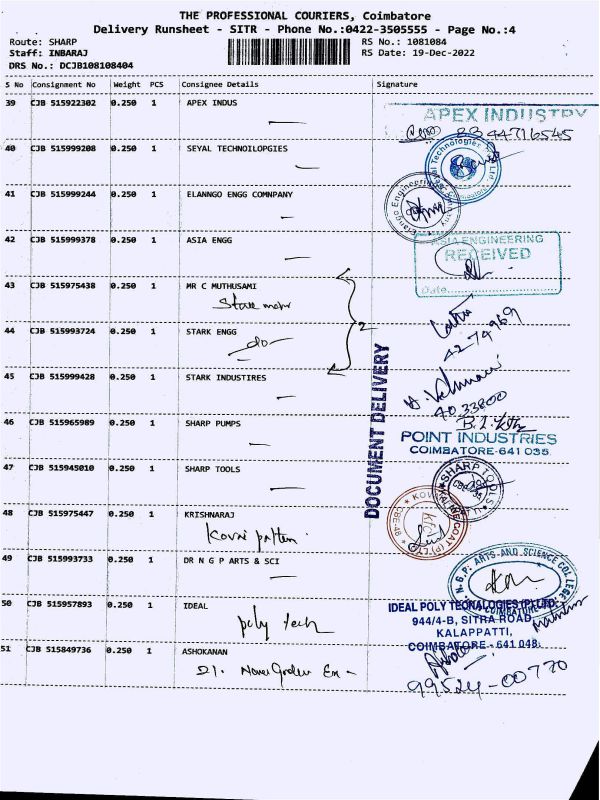 THE PROFESSIONAL COURIERS, Coimbatore
Delivery Runsheet - SITR - Phone No.:0422-3505555 - Page No.:4
Route: SHARP RS No.: 1081084
Staff: INBARAJ RS Date: 19-Dec-2022
DRS No.: DCJB108108404
S No Consignment No Weight PCS Consignee Details Signature
39 CJB 515922302 0.250 1 APEX INDUS
APEX INDUSTRY
40 CJB 515999208 0.250 1 SEYAL TECHNOILOPGIES
41 CJB 515999244 0.250 1 ELANNGO ENGG COMNPANY
42 CJB 515999378 0.250 1 ASIA ENGG
ASIA ENGINEERING
RECEIVED
Date
43 CJB 515975438 0.250 1 MR C MUTHUSAMI
2
44 CJB 515993724 0.250 1 STARK ENGG
do
42 74969
45 CJB 515999428 0.250 1 STARK INDUSTIRES
40 33800
DOCUMENT DELIVERY
46 CJB 515965989 0.250 1 SHARP PUMPS
POINT INDUSTRIES
COIMBATORE-641 035
47 CJB 515945010 0.250 1 SHARP TOOLS
SHARP TOOLS
48 CJB 515975447 0.250 1 KRISHNARAJ
Kovai pattern
49 CJB 515993733 0.250 1 DR N G P ARTS & SCI
N.G.P. ARTS AND SCIENCE COLLEGE
50 CJB 515957893 0.250 1 IDEAL
poly tech
IDEAL POLY TECNALOGIES (P) LTD.
944/4-B, SITRA ROAD
KALAPPATTI,
COIMBATORE - 641 048.
51 CJB 515849736 0.250 1 ASHOKANAN
99524-00770